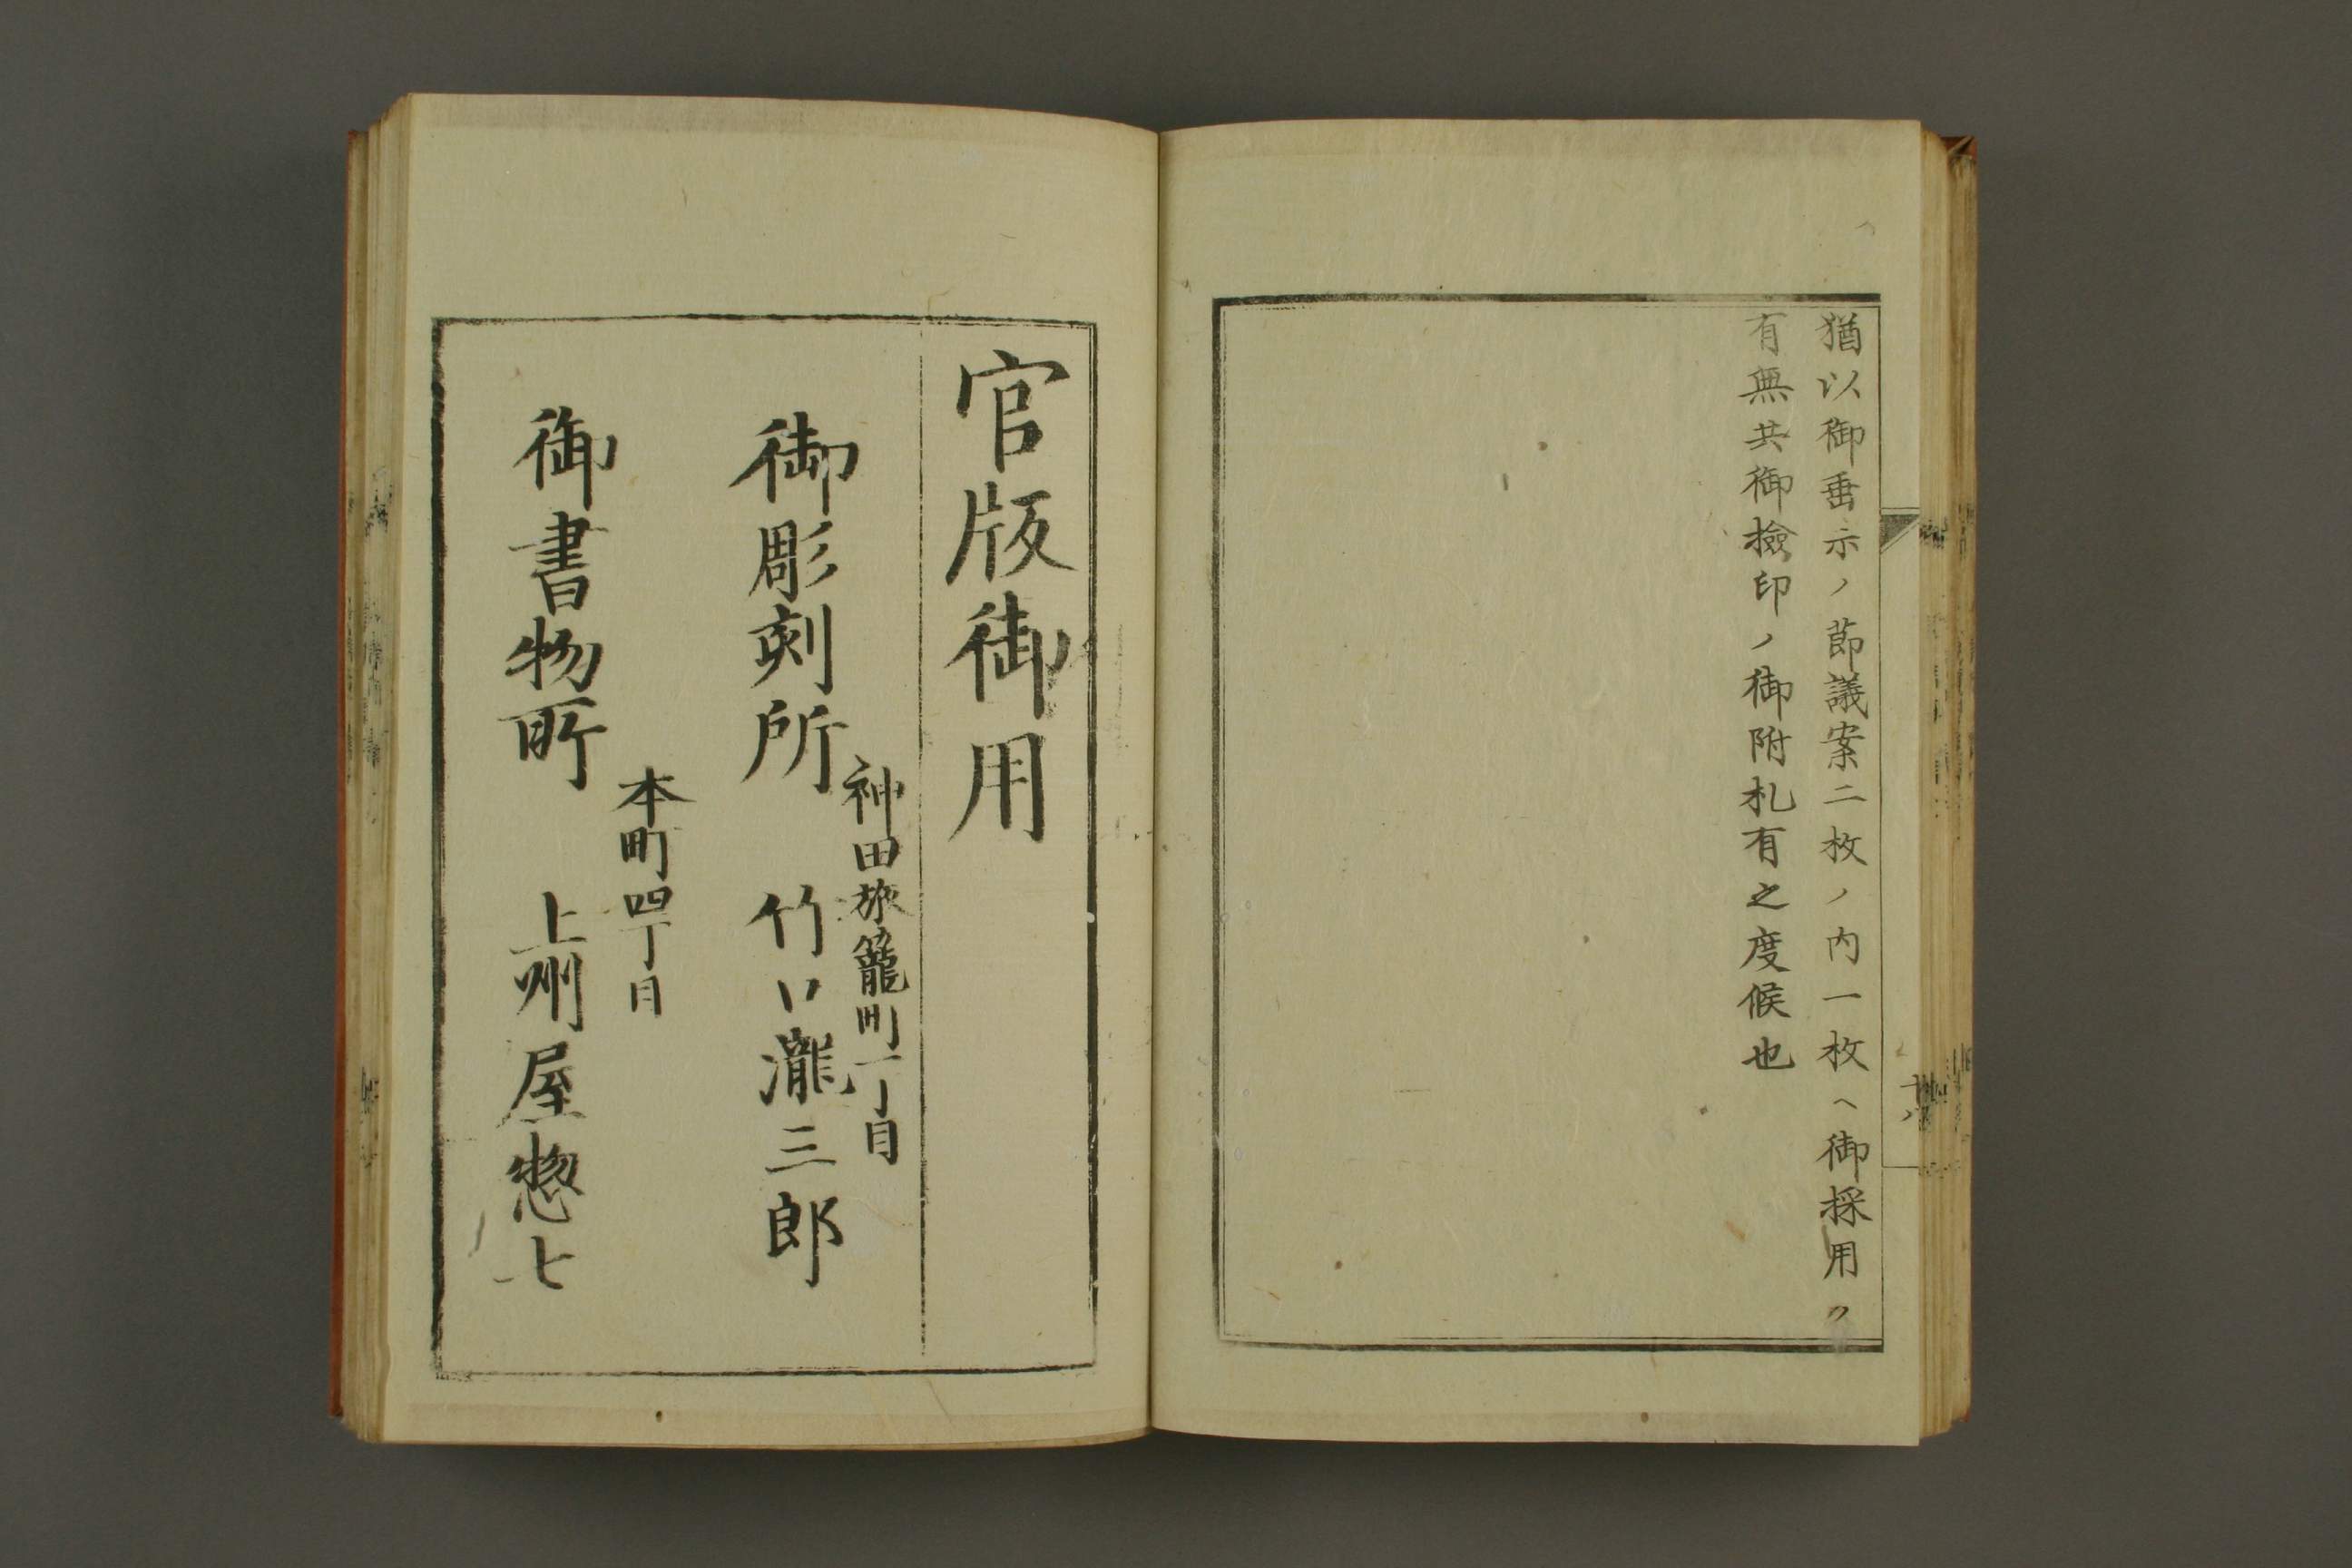 猶以御垂示ノ節議案二枚ノ内一枚ヘ御採用ク
有無共御檢印ノ御附札有之度候也
官版御用
神田旅籠町一丁目
御彫刻所 竹口瀧三郎
本町四丁目
御書物所 上州屋惣七